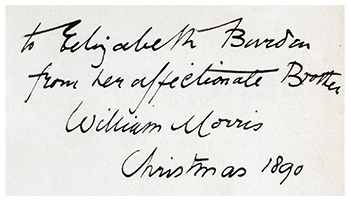 to Elizabeth Burden
from her affectionate Brother
William Morris
Christmas 1890